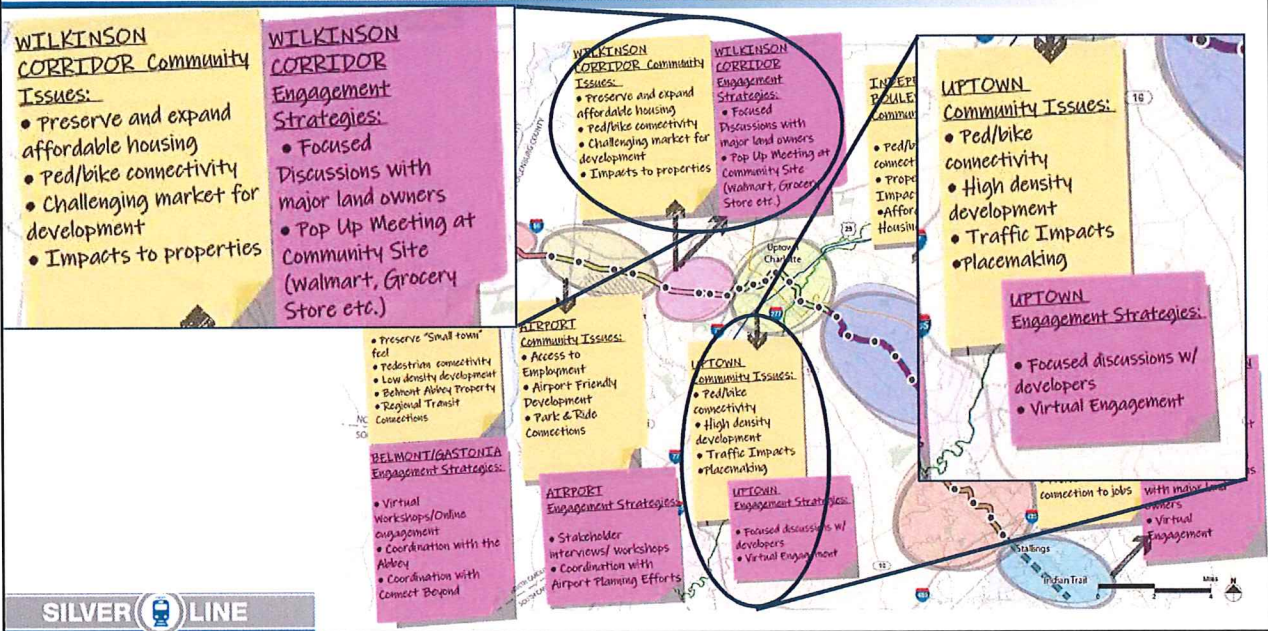 WILKINSON
CORRIDOR Community
Issues:
• Preserve and expand
affordable housing
• Ped/bike connectivity
• Challenging market for
development
• Impacts to properties
WILKINSON
CORRIDOR
Engagement
Strategies:
• Focused
Discussions with
major land owners
• Pop Up Meeting at
Community Site
(Walmart, Grocery
Store etc.)
WILKINSON
CORRIDOR Community
Issues:
• Preserve and expand
affordable housing
• Ped/bike connectivity
• Challenging market for
development
• Impacts to properties
WILKINSON
CORRIDOR
Engagement
Strategies:
• Focused
Discussions with
major land owners
• Pop Up Meeting at
Community Site
(Walmart, Grocery
Store etc.)
• Ped/b
connect
• Prope
Impac
•Affor
Housin
UPTOWN
Community Issues:
• Ped/bike
connectivity
• High density
development
• Traffic Impacts
•Placemaking
UPTOWN
Engagement Strategies:
• Focused discussions w/
developers
• Virtual Engagement
16
Uptown
Charlotte
277
• Preserve "Small town"
feel
• Pedestrian connectivity
• Low density development
• Belmont Abbey Property
• Regional Transit
Connections
BELMONT/GASTONIA
Engagement Strategies:
• Virtual
Workshops/Online
engagement
• Coordination with the
Abbey
• Coordination with
Connect Beyond
AIRPORT
Community Issues:
• Access to
Employment
• Airport Friendly
Development
• Park & Ride
Connections
AIRPORT
Engagement Strategies:
• Stakeholder
interviews/ workshops
• Coordination with
Airport Planning Efforts
UPTOWN
Community Issues:
• Ped/bike
connectivity
• High density
development
• Traffic Impacts
•Placemaking
UPTOWN
Engagement Strategies:
• Focused discussions w/
developers
• Virtual Engagement
connection to jobs
with major
owners
• Virtual
Engagement
Stallings
Indian Trail
Miles
0 2 4
N
SILVER LINE